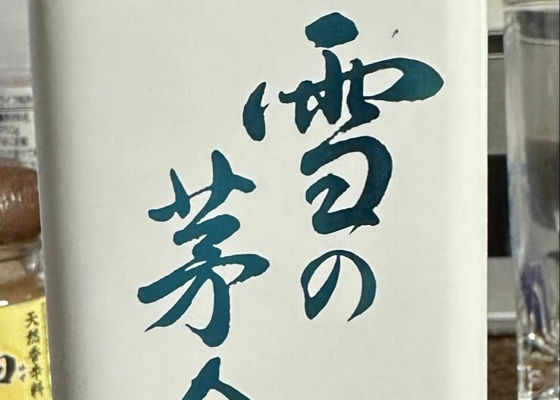 雪の
茅
天然香辛料